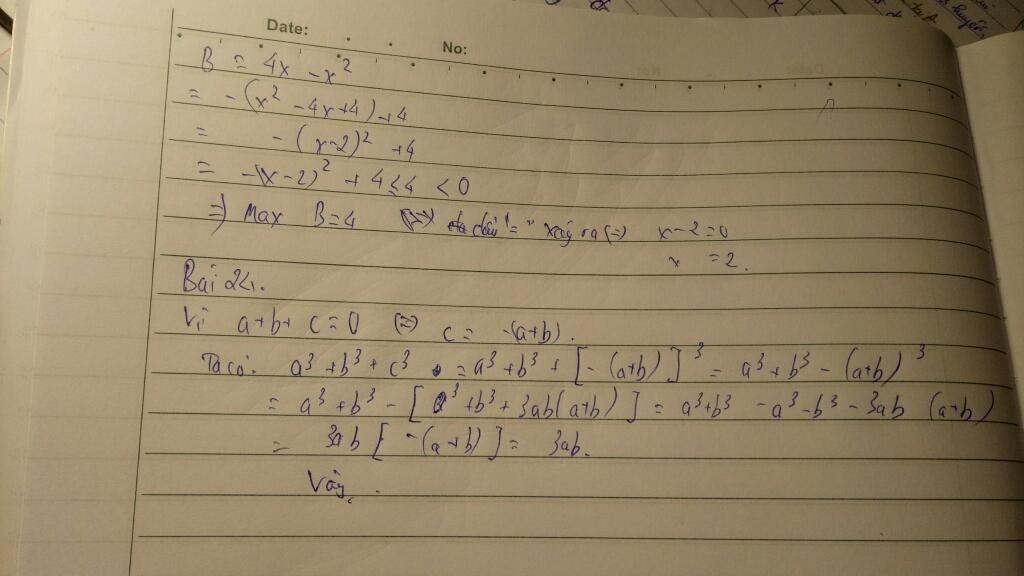 Date:
No:
B = 4x - x²
= - (x² - 4x + 4) + 4
= - (x-2)² + 4
= -(x-2)² + 4 ≤ 4 < 0
=) Max B = 4 (=) dấu "=" xảy ra (=) x-2=0
x = 2.
Bài 24.
Vì a+b+c=0 (=) c = -(a+b).
Ta có: a³+b³+c³ = a³+b³+[-(a+b)]³ = a³+b³-(a+b)³
= a³+b³-[a³+b³+3ab(a+b)] = a³+b³-a³-b³-3ab (a+b)
= 3ab[-(a+b)] = 3ab.
Vậy